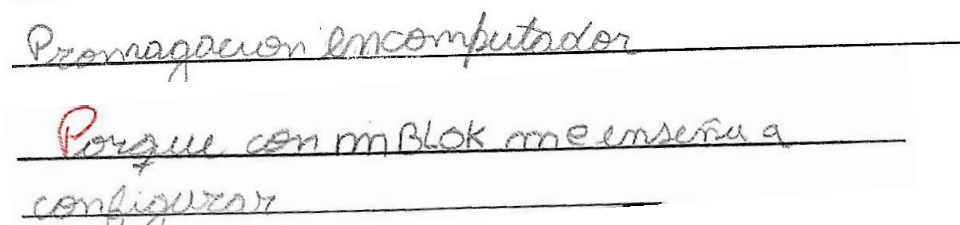 Promagacion encomputador
Porque con mBLOK me enseña a
configurar